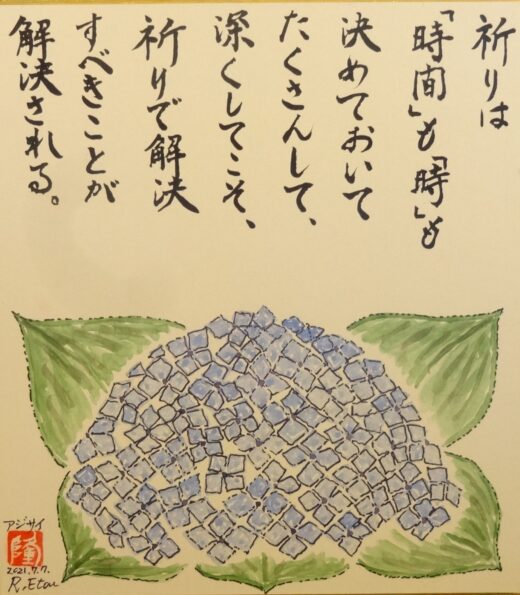 祈りは
「時間」も「時」も
決めておいて
たくさんして、
深くしてこそ、
祈りで解決
すべきことが
解決される。
アジサイ
2021.7.7.
R.Etou